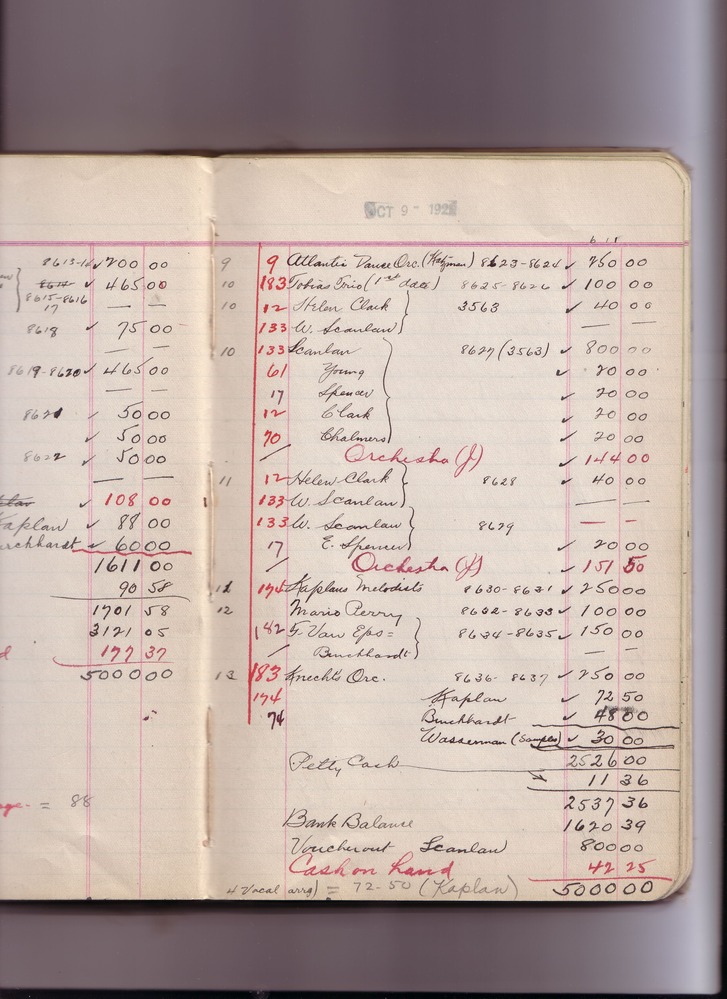 8613-14 ✓ 200 00
8614 ✓ 465 00
8615-8616
17 — —
8618 ✓ 75 00
— —
8619-8620 ✓ 465 00
— —
8621 ✓ 50 00
✓ 50 00
8622 ✓ 50 00
— —
✓ 108 00
Kaplan ✓ 88 00
Burchhardt ✓ 60 00
1611 00
90 58
1701 58
3121 05
d 177 37
5000 00
= 88
OCT 9 - 192
9 9 Atlantic Dance Orc. (Katzman) 8623-8624 ✓ 250 00
10 183 Tobias Trio (1st date) 8625-8626 ✓ 100 00
10 12 Helen Clark } 3563 ✓ 40 00
133 W. Scanlan — —
10 133 Scanlan 8627 (3563) ✓ 800 00
61 Young ✓ 20 00
17 Spencer ✓ 20 00
12 Clark ✓ 20 00
70 Chalmers ✓ 20 00
/ Orchestra (J) ✓ 144 00
11 12 Helen Clark } 8628 ✓ 40 00
133 W. Scanlan — —
133 W. Scanlan } 8629 — —
17 E. Spencer ✓ 20 00
/ Orchestra (J) ✓ 151 50
12 174 Kaplans Melodists 8630-8631 ✓ 250 00
12 Mario Perry 8632-8633 ✓ 100 00
182 F. Van Eps = } 8634-8635 ✓ 150 00
/ Burchhardt — —
13 183 Knecht's Orc. 8636-8637 ✓ 250 00
174 Kaplan ✓ 72 50
74 Burchhardt ✓ 48 00
Wasserman (Samples) ✓ 30 00
2526 00
Petty Cash 11 36
2537 36
Bank Balance 1620 39
Voucher out Scanlan 800 00
Cash on hand 42 25
5000 00
4 Vocal arrg) = 72-50 (Kaplan)